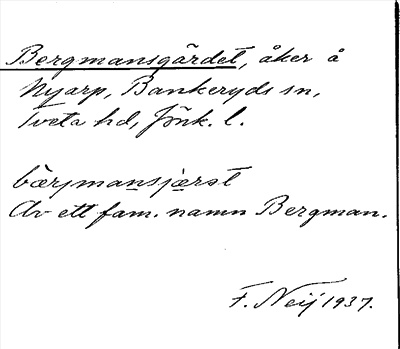 Bergmansgärdet, åker å
Nyarp, Bankeryds sn,
Tveta hd, Jönk. l.
bærjmansjærst
Av ett fam. namn Bergman.
F. Neij 1937.